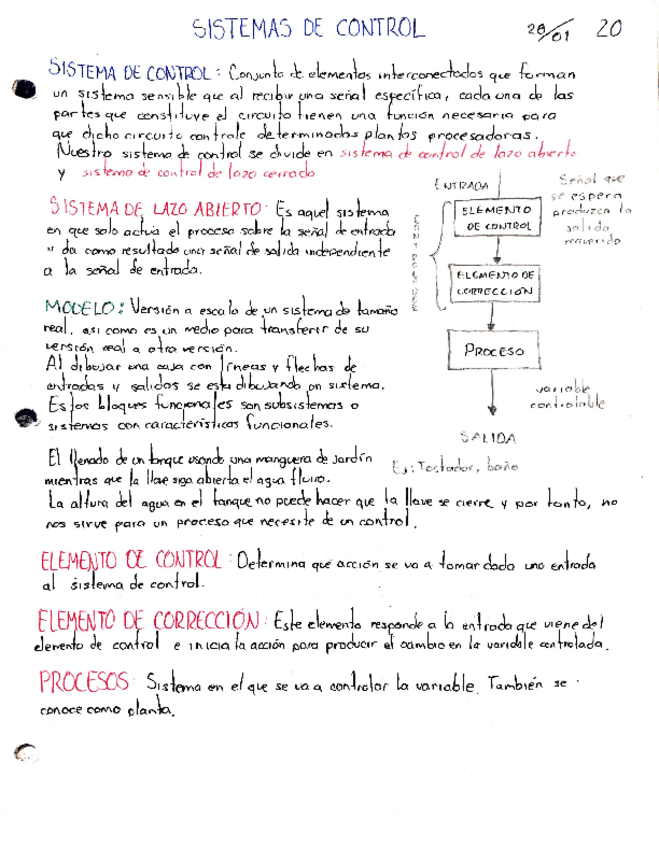 SISTEMAS DE CONTROL
28/01
20
SISTEMA DE CONTROL: Conjunto de elementos interconectados que forman
un sistema sensible que al recibir una señal específica, cada una de las
partes que constituye el circuito tienen una función necesaria para
que dicho circuito controle determinados plantas procesadoras.
Nuestro sistema de control se divide en sistema de control de lazo abierto
y sistema de control de lazo cerrado
SISTEMA DE LAZO ABIERTO: Es aquel sistema
en que solo actúa el proceso sobre la señal de entrada
y da como resultado una señal de salida independiente
a la señal de entrada.
MODELO: Versión a escala de un sistema de tamaño
real, asi como es un medio para transferir de su
versión real a otra versión.
Al dibujar una caja con líneas y flechas de
entradas y salidas se esta dibujando un sistema.
Estos bloques funcionales son subsistemas o
sistemas con características funcionales.
ENTRADA
Señal que
se espera
produzca la
salida
requerida
ELEMENTO
DE CONTROL
ELEMENTO DE
CORRECCIÓN
PROCESO
variable
controlable
SALIDA
Ej: Tostador, baño
El llenado de un tanque usando una manguera de jardín
mientras que la llave siga abierta el agua fluirá.
La altura del agua en el tanque no puede hacer que la llave se cierre y por tanto, no
nos sirve para un proceso que necesite de un control.
ELEMENTO DE CONTROL: Determina que acción se va a tomar dado una entrada
al sistema de control.
ELEMENTO DE CORRECCIÓN: Este elemento responde a la entrada que viene del
elemento de control e inicia la acción para producir el cambio en la variable controlada.
PROCESOS: Sistema en el que se va a controlar la variable. También se
conoce como planta.